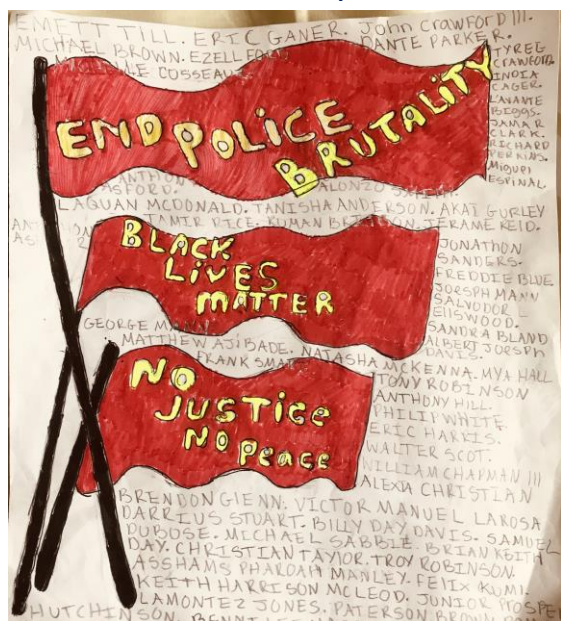 EMETT TILL. ERIC GANER. John CRAWFORD III.
MICHAEL BROWN. EZELL FORD. DANTE PARKER.
COSSEAUX
TYREE
CRAWFORD.
INDIA
CAGER.
LAVANTE
BIGGS.
JAMAR
CLARK.
RICHARD
PERKINS.
MIGUEL
ESPINAL
END POLICE
BRUTALITY
ASFORD. ALONZO
LAQUAN MCDONALD. TANISHA ANDERSON. AKAI GURLEY
TAMIR RICE. RUMAN BRISBON. JERAME REID.
BLACK
LIVES
MATTER
JONATHON
SANDERS.
FREDDIE BLUE
JORSPH MANN
SALVODOR
ELISWOOD.
SANDRA BLAND
ALBERT JORSPH
DAVIS.
GEORGE MANN.
MATTHEW AJIBADE. NATASHA MCKENNA. MYA HALL
FRANK SMART
TONY ROBINSON
ANTHONY HILL.
PHILIP WHITE.
ERIC HARRIS.
WALTER SCOT.
WILLIAM CHAPMAN III
ALEXIA CHRISTIAN
NO
JUSTICE
NO PEACE
BRENDON GIENN. VICTOR MANUEL LAROSA
DARRIUS STUART. BILLY DAY DAVIS. SAMUEL
DUBOSE. MICHAEL SABBIE. BRIAN KEITH
DAY. CHRISTIAN TAYLOR. TROY ROBINSON.
ASSHAMS PHAROAH MANLEY. FELIX KUMI.
KEITH HARRISON MCLEOD. JUNIOR PROSPE
LAMONTEZ JONES. PATERSON BROWN
HUTCHINSON.